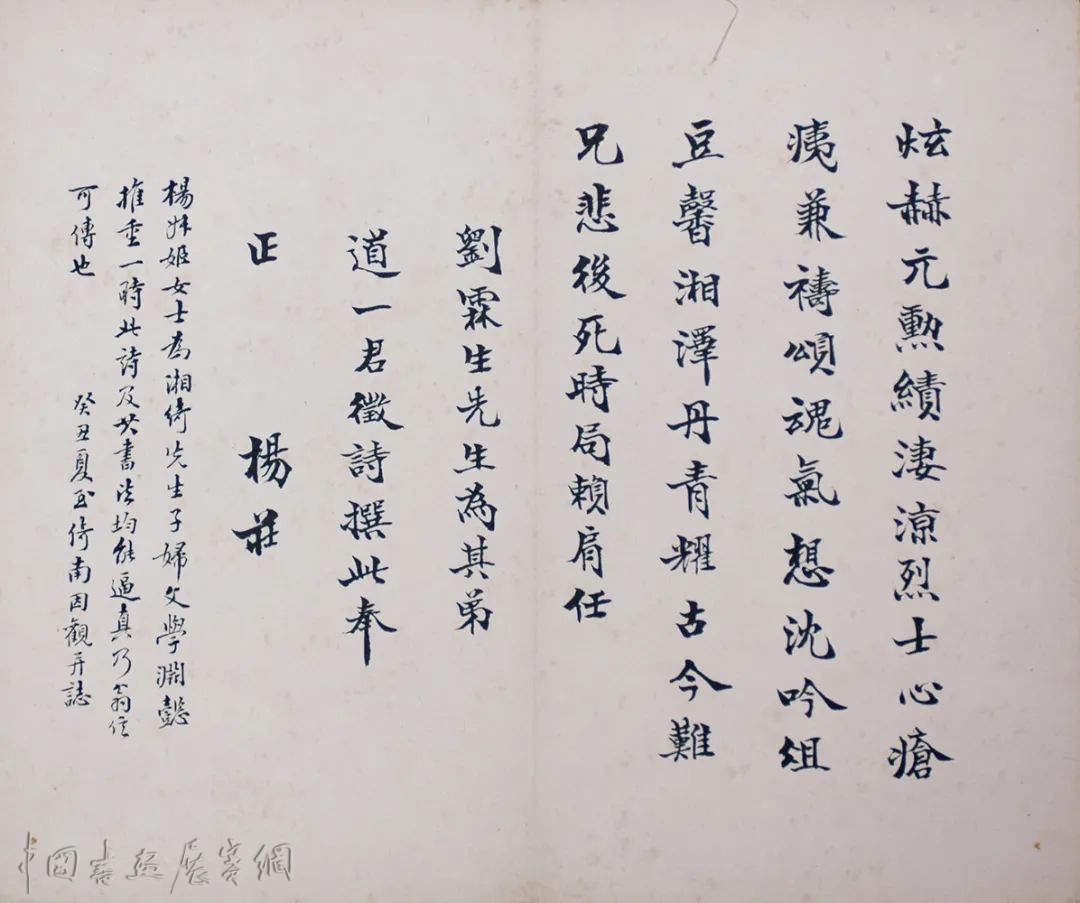 炫赫元勲績淒涼烈士心瘡
痍兼禱頌魂氣想沈吟俎
豆馨湘澤丹青耀古今難
兄悲後死時局賴肩任
劉霖生先生為其弟
道一君徵詩撰此奉
正　楊莊
楊妹姬女士為湘綺先生子婦文學淵懿
推重一時此詩及其書法均能逼真乃翁信
可傳也　癸丑夏至倚南因觀并誌
中国书画展赛網